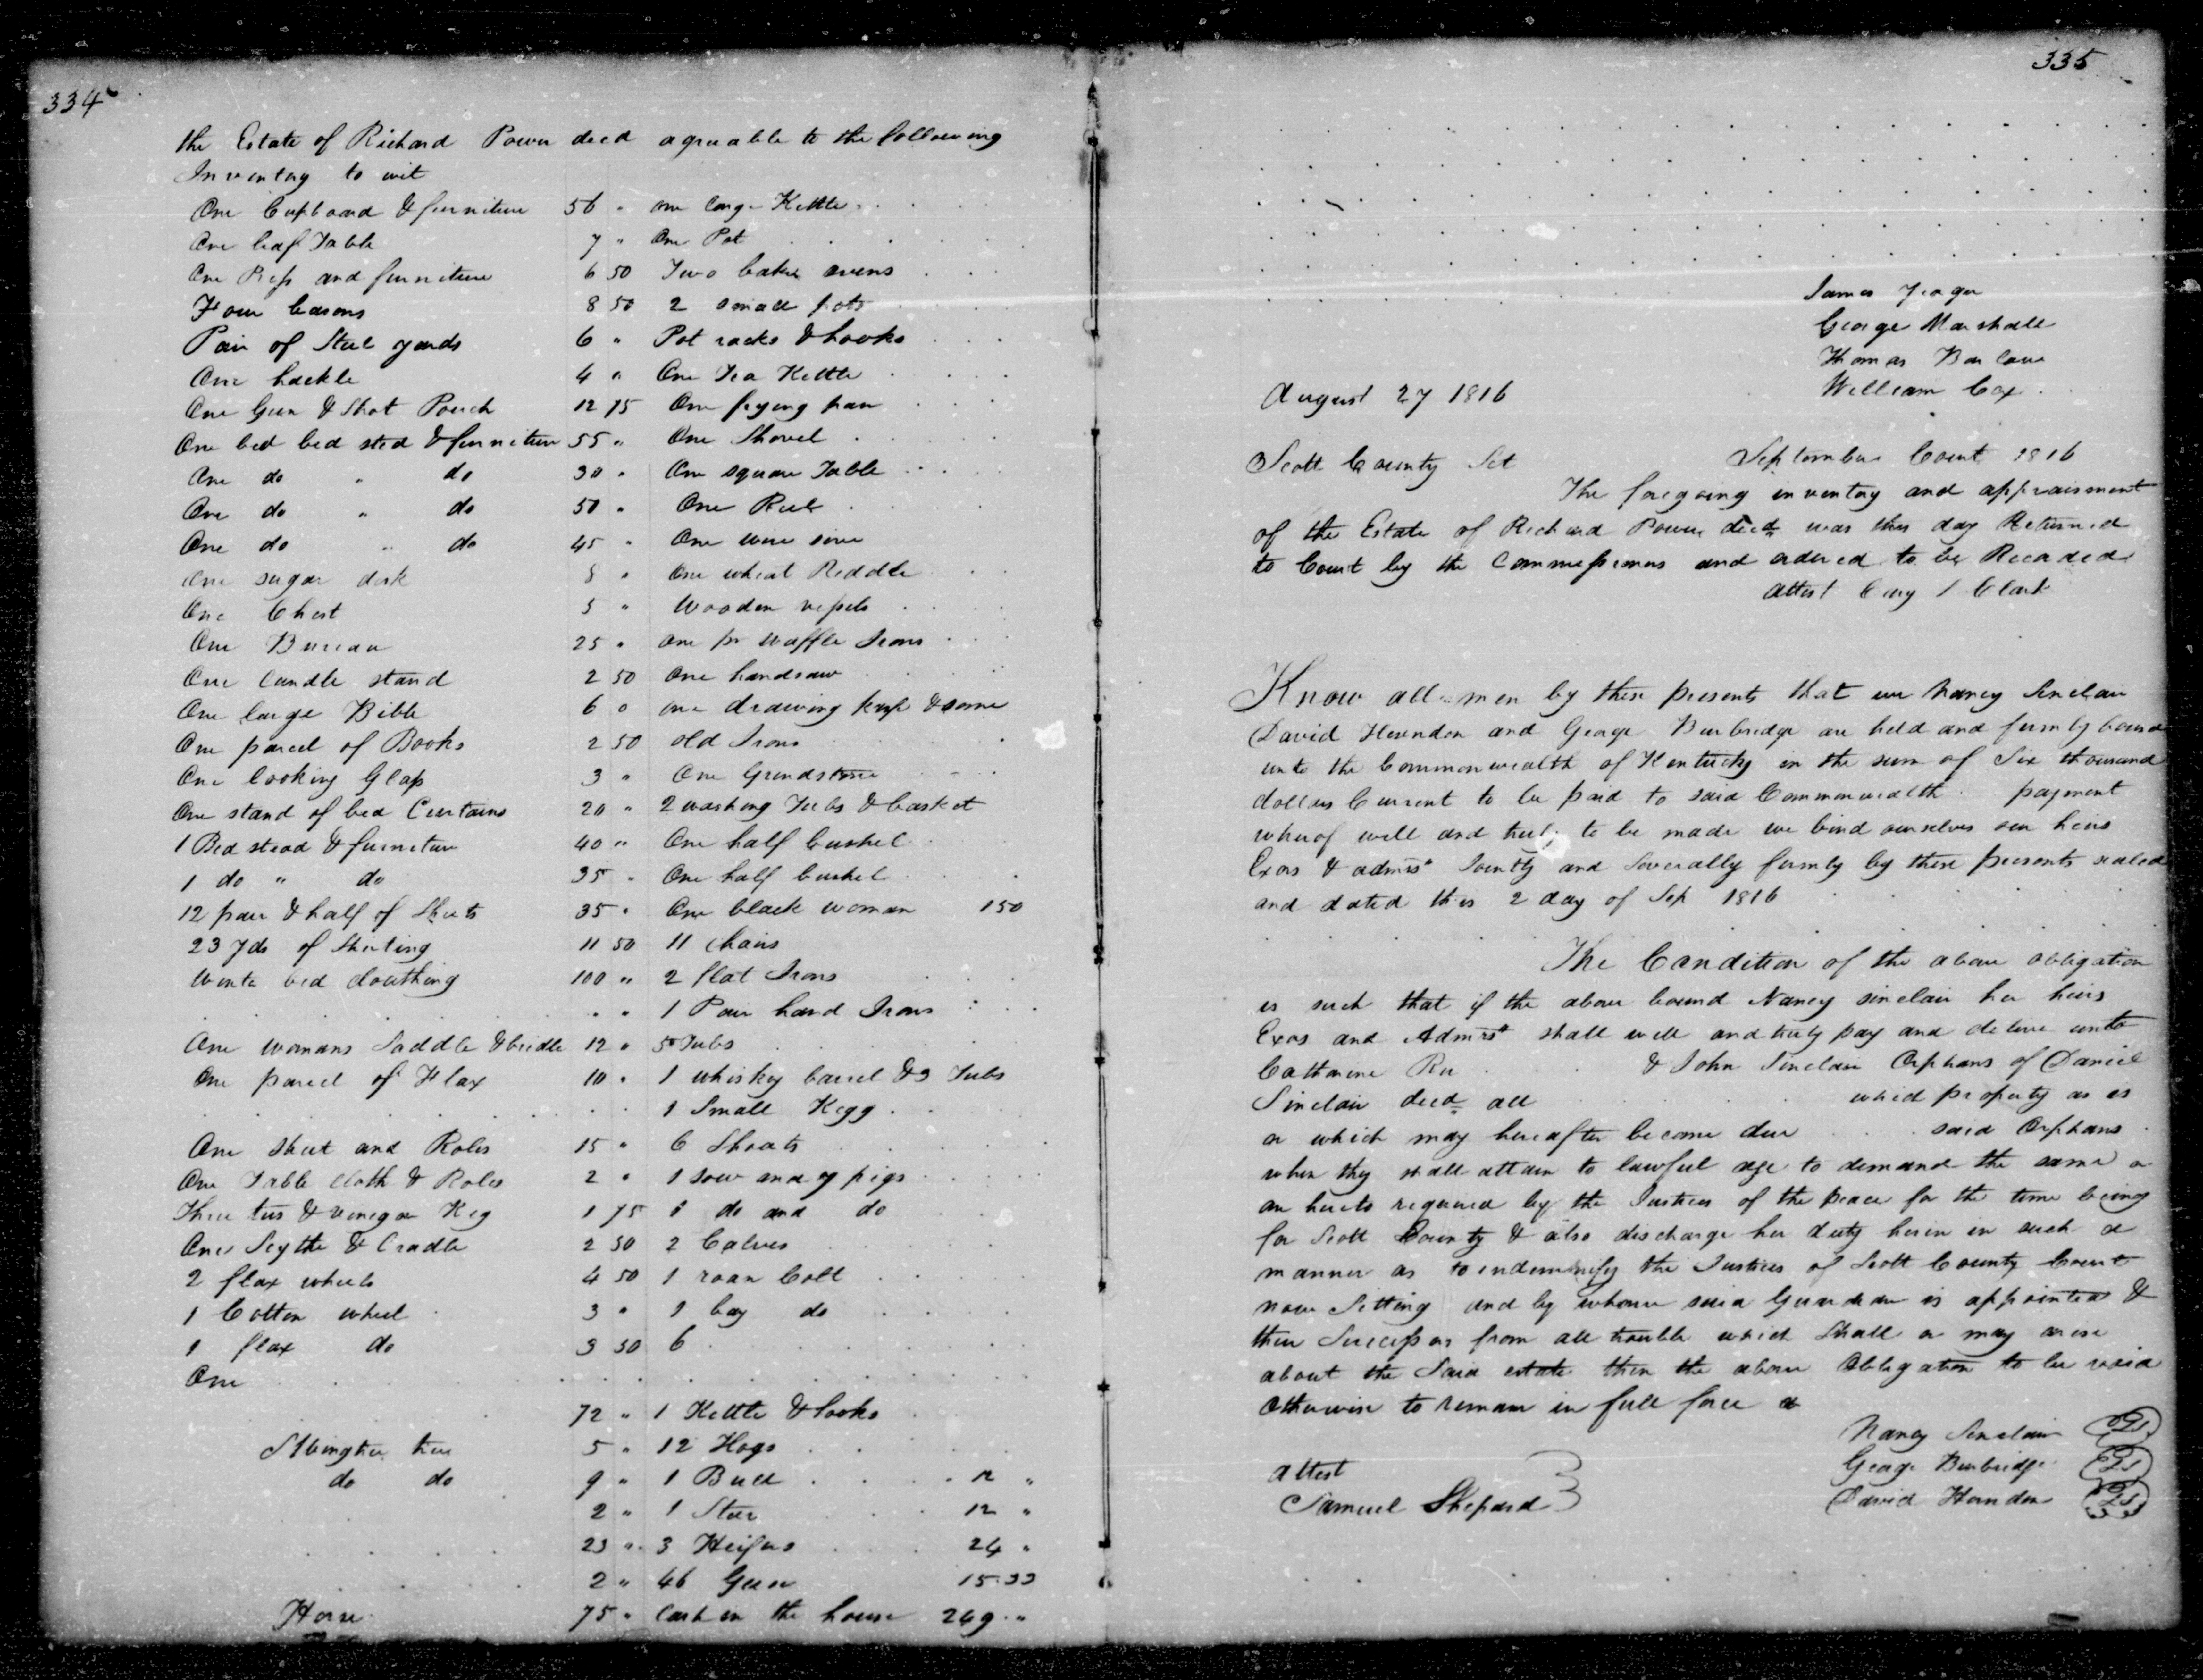 334
the Estate of Richard Power decd agreeable to the following
Inventory to wit
One Cupboard & furniture 56 "
One leaf Table 7 "
One Press and furniture 6 50
Four basons 8 50
Pair of Steel yards 6 "
One hackle 4 "
One Gun & Shot Pouch 12 75
One bed bed sted & furniture 55 "
One do " do 30 "
One do " do 50 "
One do " do 45 "
One sugar desk 8 "
One Chest 5 "
One Bureau 25 "
One Candle stand 2 50
One large Bible 6 0
One parcel of Books 2 50
One looking Glass 3 "
One stand of bed Curtains 20 "
1 Bed stead & furniture 40 "
1 do " do 35 "
12 pair & half of Sheets 35 "
23 yds of Shirting 11 50
bed clouthing 100 "
" "
One womans Saddle & bridle 12 "
One parcel of Flax 10 "
One Sheet and Roles 15 "
One Table cloth & Roles 2 "
Three & Vinegar Keg 1 75
One Sythe & Cradle 2 50
2 flax wheels 4 50
1 Cotton wheel 3 "
1 flax do 3 50
One
72 "
5 "
do do 9 "
2 "
23 "
2 "
Horse 75 "
one large Kettle
One Pot
Two bake ovens
2 small pots
Pot racks & hooks
One Tea Kettle
One frying pan
One Shovel
One square Table
One Reel
One wire sive
One wheat Riddle
Wooden vessels
one pr Waffle Irons
One handsaw
one drawing knife & some
old Irons
One Grindstone
2 washing Tubs & basket
One half bushel
One half bushel
One black woman 150
11 chairs
2 flat Irons
1 Pair hand Irons
5 Tubs
1 whiskey barrel & 3 Tubs
1 Small Kegg
6 Shoats
1 sow and 7 pigs
1 do and do
2 Calves
1 roan Colt
1 bay do
6
1 Kettle & hooks
12 Hogs
1 Bull 12 "
1 Steer 12 "
3 Heifers 24 "
46 Geese 15.33
Cash in the house 249 "
335
James Yeager
George Marshall
Thomas Barlow
William Cox
August 27 1816
Scott County Sct September Court 1816
The foregoing inventory and appraisment
of the Estate of Richard Power decd was this day Returned
to Court by the Commissioners and ordered to be Recorded
attest Cary L Clark
Know all men by these presents that we Nancy Sinclair
David Herndon and George Burbridge are held and firmly bound
unto the Commonwealth of Kentucky in the sum of Six thousand
dollars Current to be paid to said Commonwealth payment
wherof well and truly to be made we bind ourselves our heirs
Exors & admrs Jointly and Severally firmly by these presents sealed
and dated this 2 day of Sep 1816
The Condition of the above obligation
is such that if the above bound Nancy Sinclair her heirs
Exors and Admrs shall well and truly pay and deliver unto
Catharine & John Sinclair Orphans of Daniel
Sinclair decd all which property as is
or which may hereafter become due said Orphans
when they shall attain to lawful age to demand the same or
as hereto required by the Justices of the peace for the time being
for Scott County & also discharge her duty herin in such a
manner as to indemnify the Justices of Scott County Court
now Setting and by whome said Guardian is appointed &
their Successors from all trouble which Shall or may arise
about the Said estate then the above Obligation to be void
Otherwise to remain in full force
Nancy Sinclair
attest George Burbridge
Samuel Shepard David Herndon